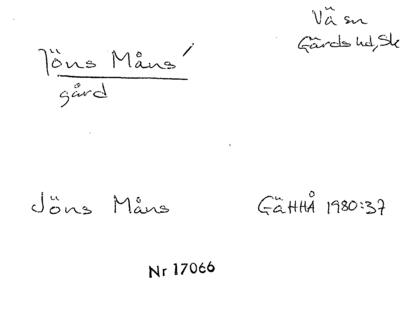 Vä sn
Gärds hd, Sk
Jöns Måns'
gård
Jöns Måns GäHHÅ 1980:37
Nr 17066